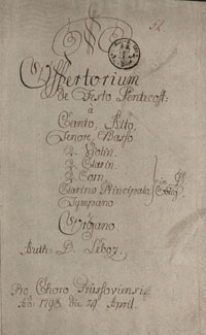 Offertorium
de Festo Pentecost:
à
Canto, Alto,
Tenore, Basso
2. Violin.
2. Clarin.
2. Corn.
Clarino Principale
Tympano
Organo
Auth: D. Loboz.
Pro Choro
1798 die 24 April.